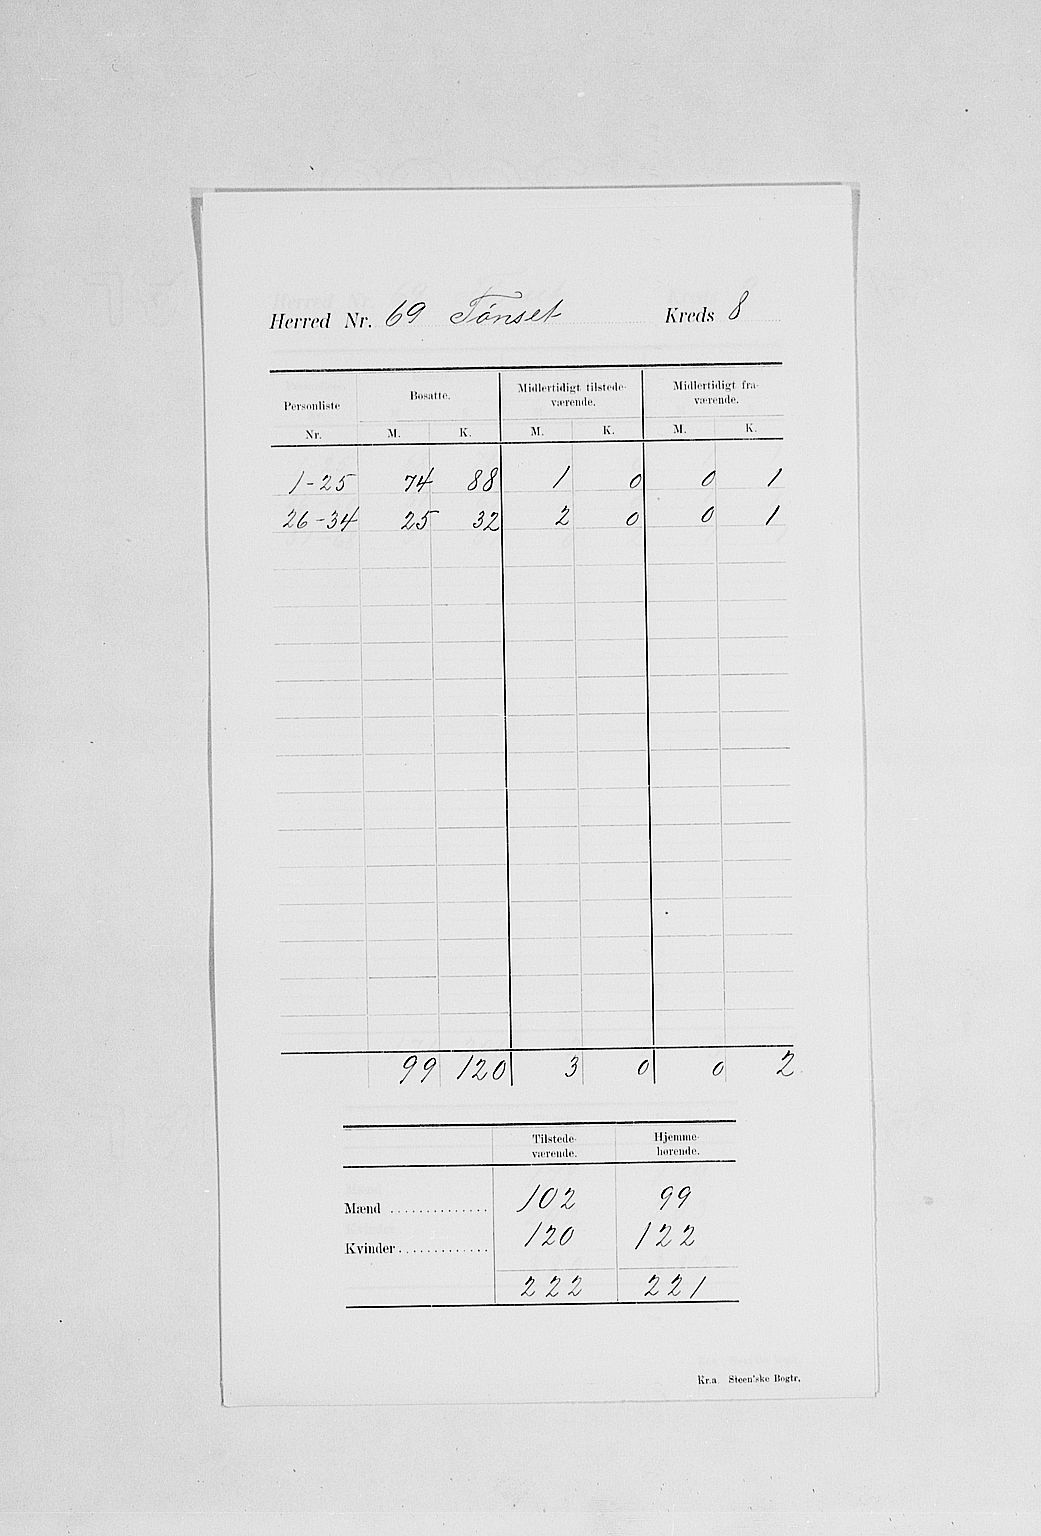 Herred Nr. 69 Tönset Kreds 8
Personliste Bosatte. Midlertidigt tilstede- Midlertidigt fra-
værende. værende.
Nr. M. K. M. K. M. K.
1-25 74 88 1 0 0 1
26-34 25 32 2 0 0 1
99 120 3 0 0 2
Tilstede- Hjemme-
værende. hørende.
Mænd .............. 102 99
Kvinder............. 120 122
222 221
Kr.a. Steen'ske Bogtr.